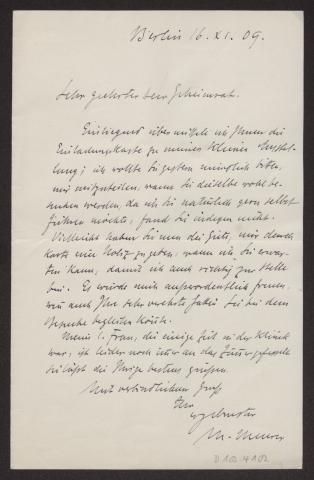 Berlin 16. XI. 09.
Sehr geehrter Herr Geheimrat.
Einliegend übermittle ich Ihnen die
Einladungskarte zu meiner kleinen Ausstel-
lung; ich wollte Sie gestern mündlich bitten,
mir mitzuteilen, wann Sie dieselbe wohl be-
suchen werden, da ich Sie natürlich gern selbst
führen möchte, fand Sie indessen nicht.
Vielleicht haben Sie nun die Güte, mir durch
Karte eine Notiz zu geben, wann ich Sie erwar-
ten kann, damit ich auch richtig zur Stelle
bin. Es würde mich außerordentlich freuen,
wenn auch Ihre sehr verehrte Gattin Sie bei dem
Besuche begleiten könnte.
Meine l. Frau, die einige Zeit in der Klinik
war, ist leider noch immer an das Zimmer gefesselt
Sie läßt die Ihrige bestens grüßen.
Mit verbindlichem Gruß
Ihr
ergebenster
D 102. 4102